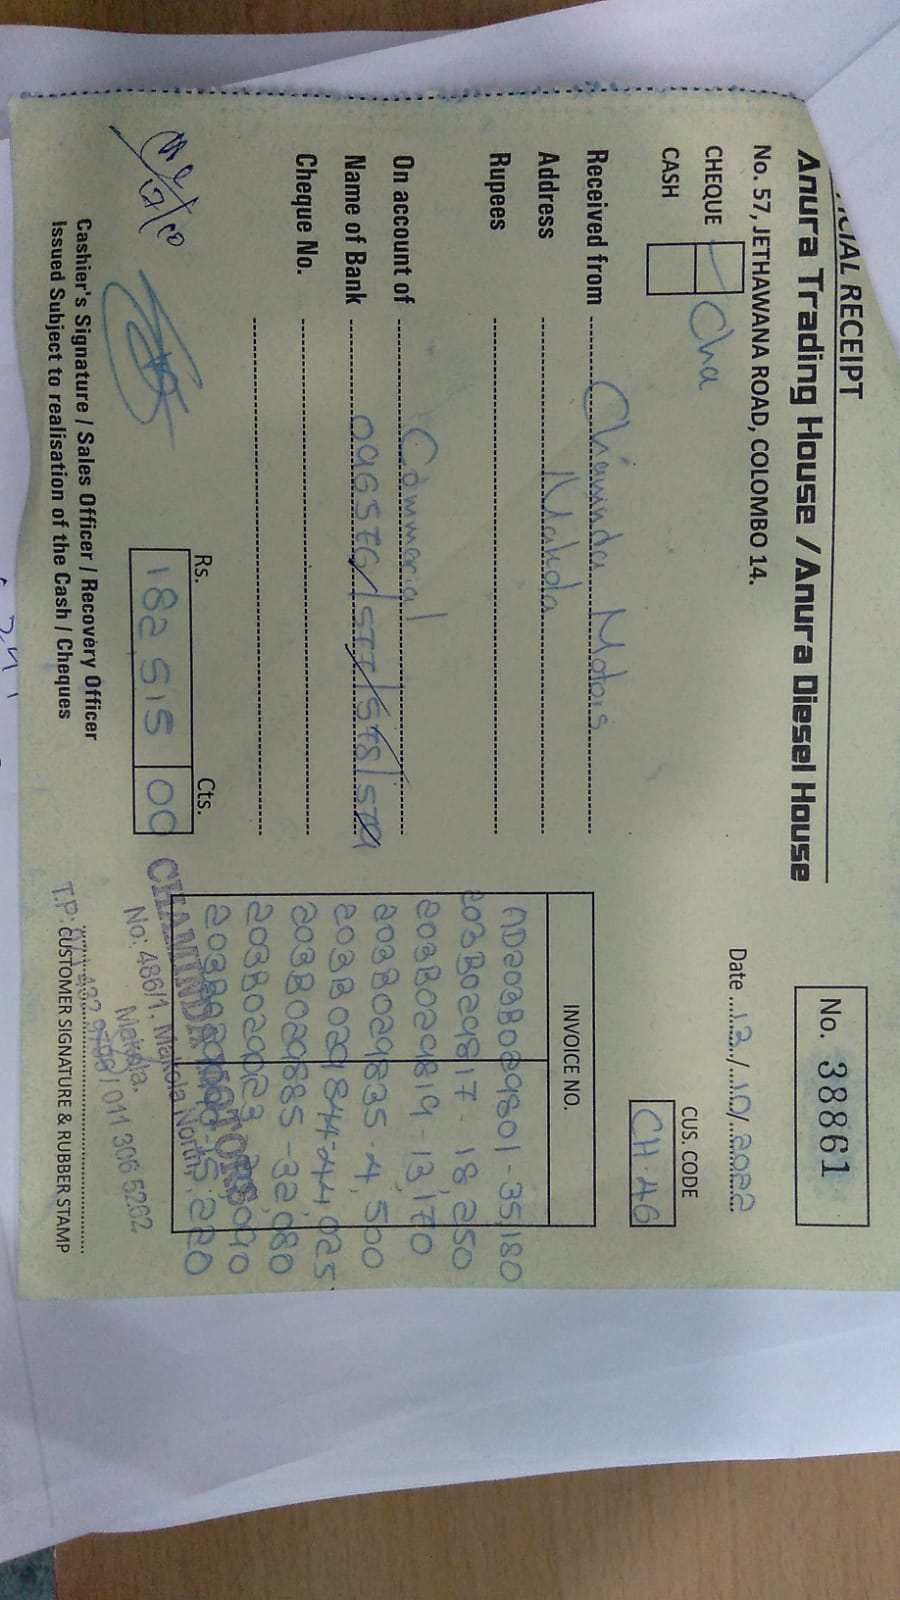 OFFICIAL RECEIPT
Anura Trading House / Anura Diesel House
No. 57, JETHAWANA ROAD, COLOMBO 14.
No. 38861
Date 12/10/2022
CHEQUE Cha
CASH
CUS. CODE
CH-AG
Received from Chaminda Motors
Address Makola
Rupees
On account of Commarcial
Name of Bank 096576/577/578/579
Cheque No.
INVOICE NO.
AD203B029801-35,180
203B029817-18,250
203B029819-13,170
203B029835-4,500
203B029844-44,025
203B029885-32,080
Rs. Cts.
182,515 00
CHAMINDA MOTORS
No: 486/1, Makola North,
Makola.
011 306 5262
Cashier's Signature / Sales Officer / Recovery Officer
Issued Subject to realisation of the Cash / Cheques
CUSTOMER SIGNATURE & RUBBER STAMP